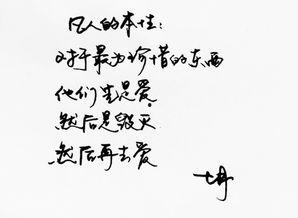 凡人的本性：
对于最为珍惜的东西
他们先是爱.
然后是毁灭
然后再去爱